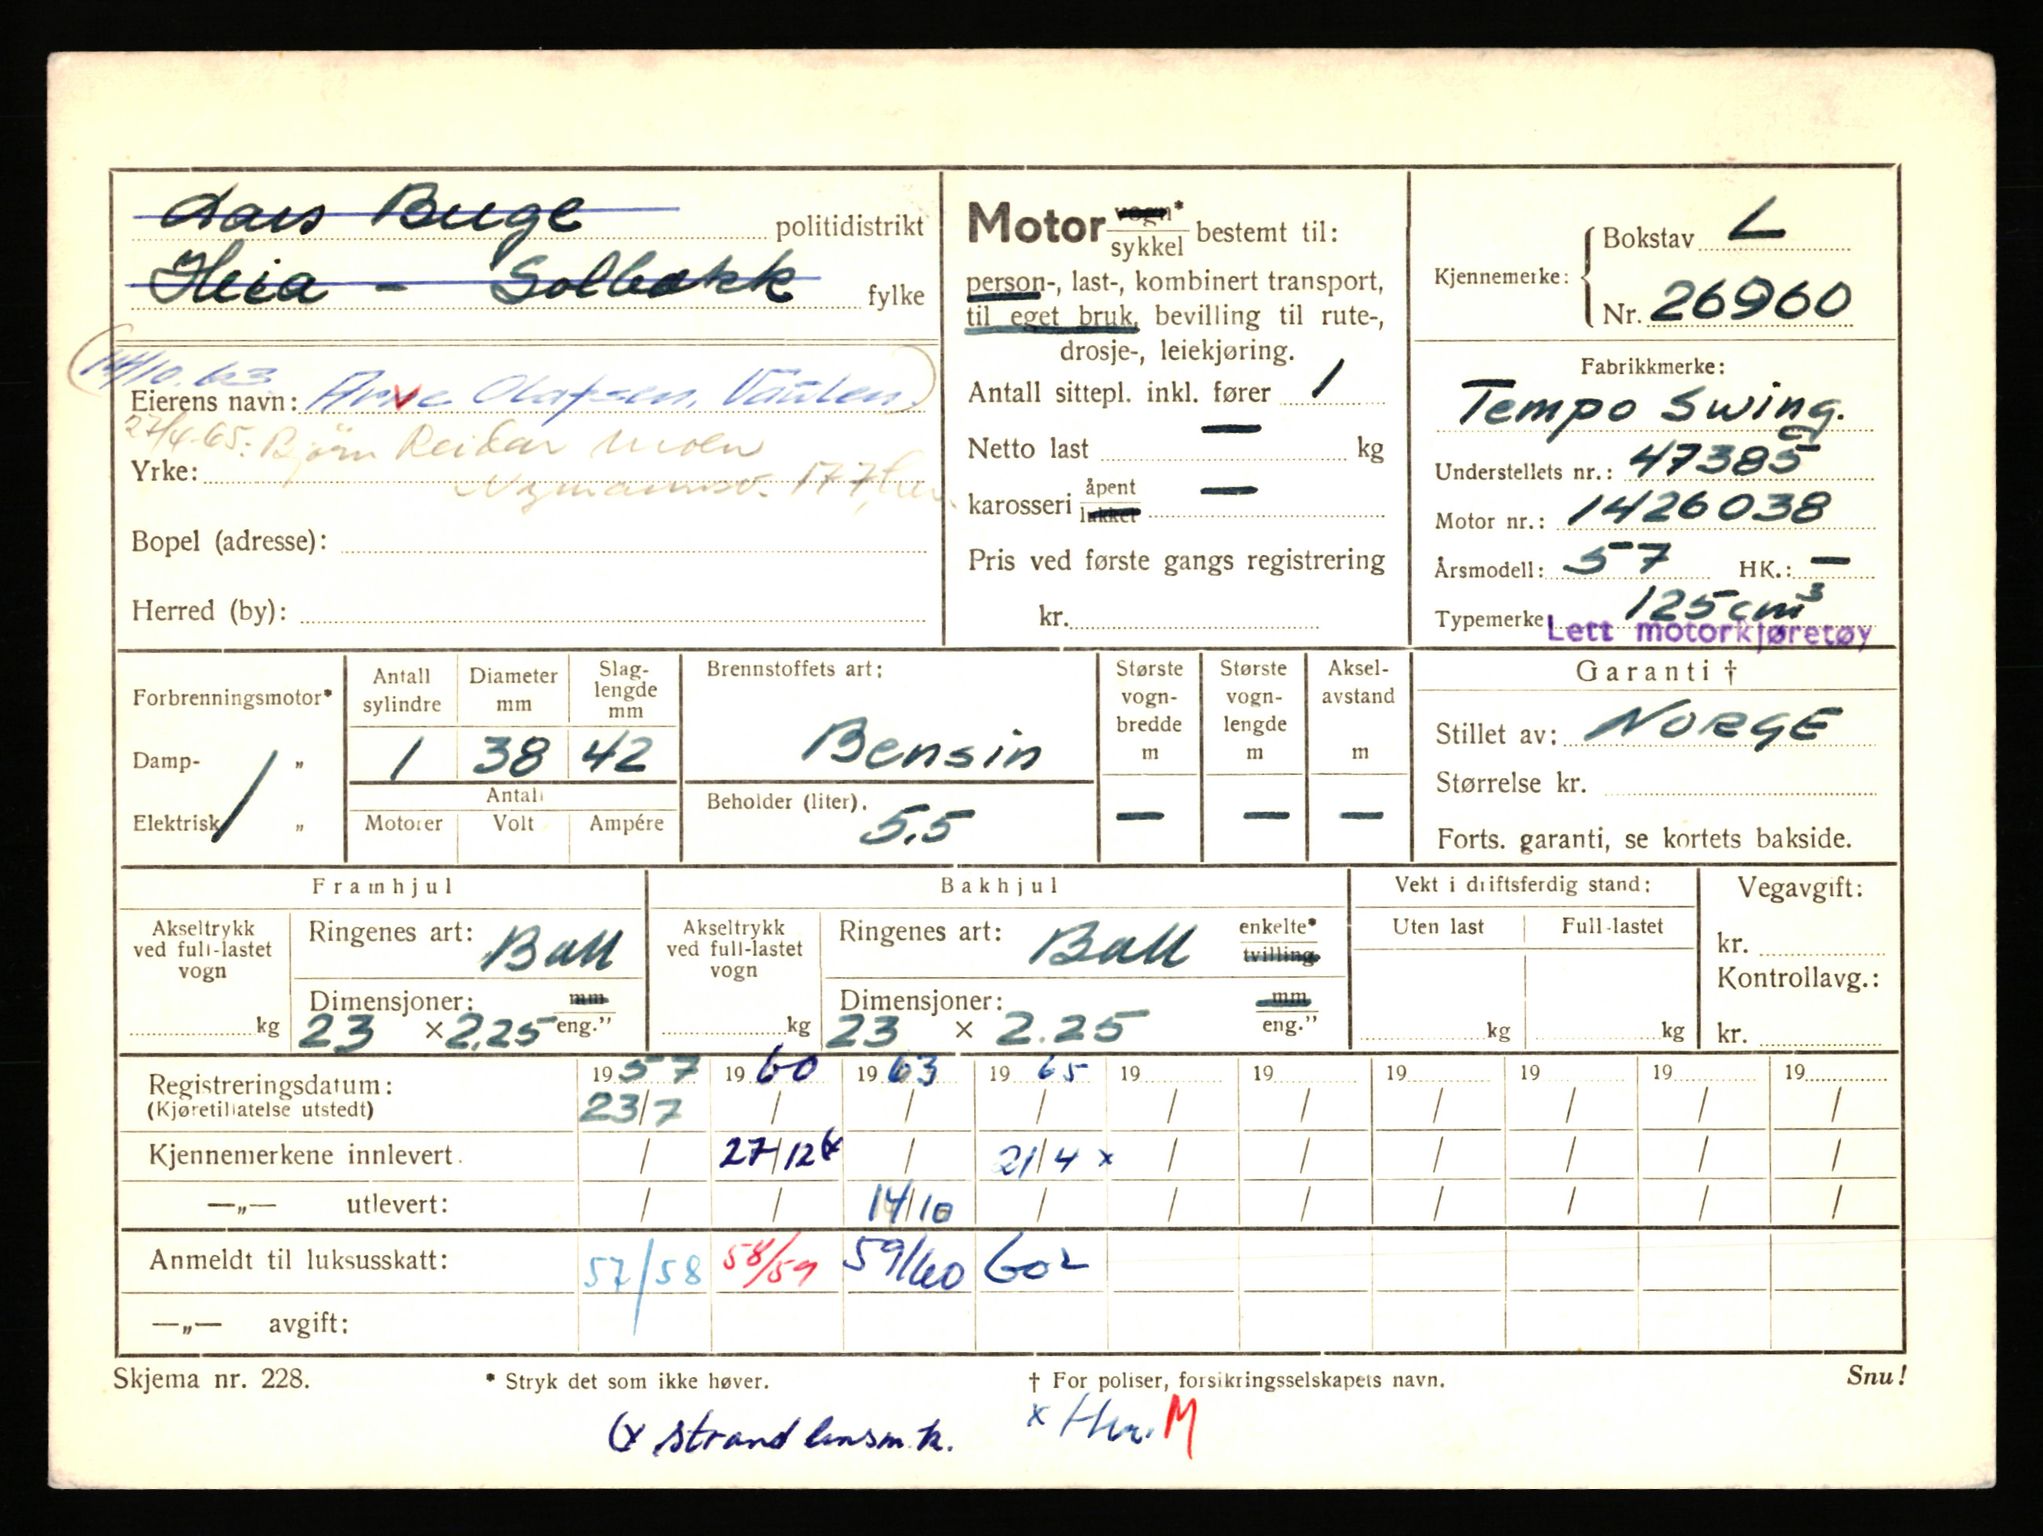 Lars Buge politidistrikt
Heia - Solbakk fylke
14/10.63
Eierens navn: Arve Olafsen, Vaulen.
27/4-65: Bjørn Reidar Moen
Yrke:
177,
Bopel (adresse):
Herred (by):
Motor vogn* sykkel bestemt til:
person-, last-, kombinert transport,
til eget bruk, bevilling til rute-,
drosje-, leiekjøring.
Antall sittepl. inkl. fører 1
Netto last — kg
karosseri åpent lukket —
Pris ved første gangs registrering
kr.
Kjennemerke: Bokstav L
Nr. 26960
Fabrikkmerke:
Tempo Swing.
Understellets nr.: 47385
Motor nr.: 1426038
Årsmodell: 57 HK.: —
Typemerke 125 cm³
Lett motorkjøretøy
Forbrenningsmotor*
Damp- „
Elektrisk „
Antall sylindre 1
Diameter mm 38
Slag-lengde mm 42
Antall
Motorer Volt Ampére
Brennstoffets art:
Bensin
Beholder (liter).
5,5
Største vogn-bredde m —
Største vogn-lengde m —
Aksel-avstand m —
Garanti †
Stillet av: NORGE
Størrelse kr.
Forts. garanti, se kortets bakside.
Framhjul
Akseltrykk ved full-lastet vogn
kg
Ringenes art: Ball
Dimensjoner: mm
23 × 2.25 eng."
Bakhjul
Akseltrykk ved full-lastet vogn
kg
Ringenes art: Ball enkelte* tvilling
Dimensjoner: mm
23 × 2.25 eng."
Vekt i driftsferdig stand:
Uten last Full-lastet
kg kg
Vegavgift:
kr.
Kontrollavg.:
kr.
Registreringsdatum: 1957 1960 1963 1965 19 19 19 19 19 19
(Kjøretillatelse utstedt) 23/7 / / / / / / / / /
Kjennemerkene innlevert. / 27/12 (x / 21/4 x / / / / / /
—„— utlevert: / / 14/10 / / / / / / /
Anmeldt til luksusskatt: 57/58 58/59 59/60 602
—„— avgift:
Skjema nr. 228. * Stryk det som ikke høver. † For poliser, forsikringsselskapets navn. Snu!
(x Strand lensm.k. x M